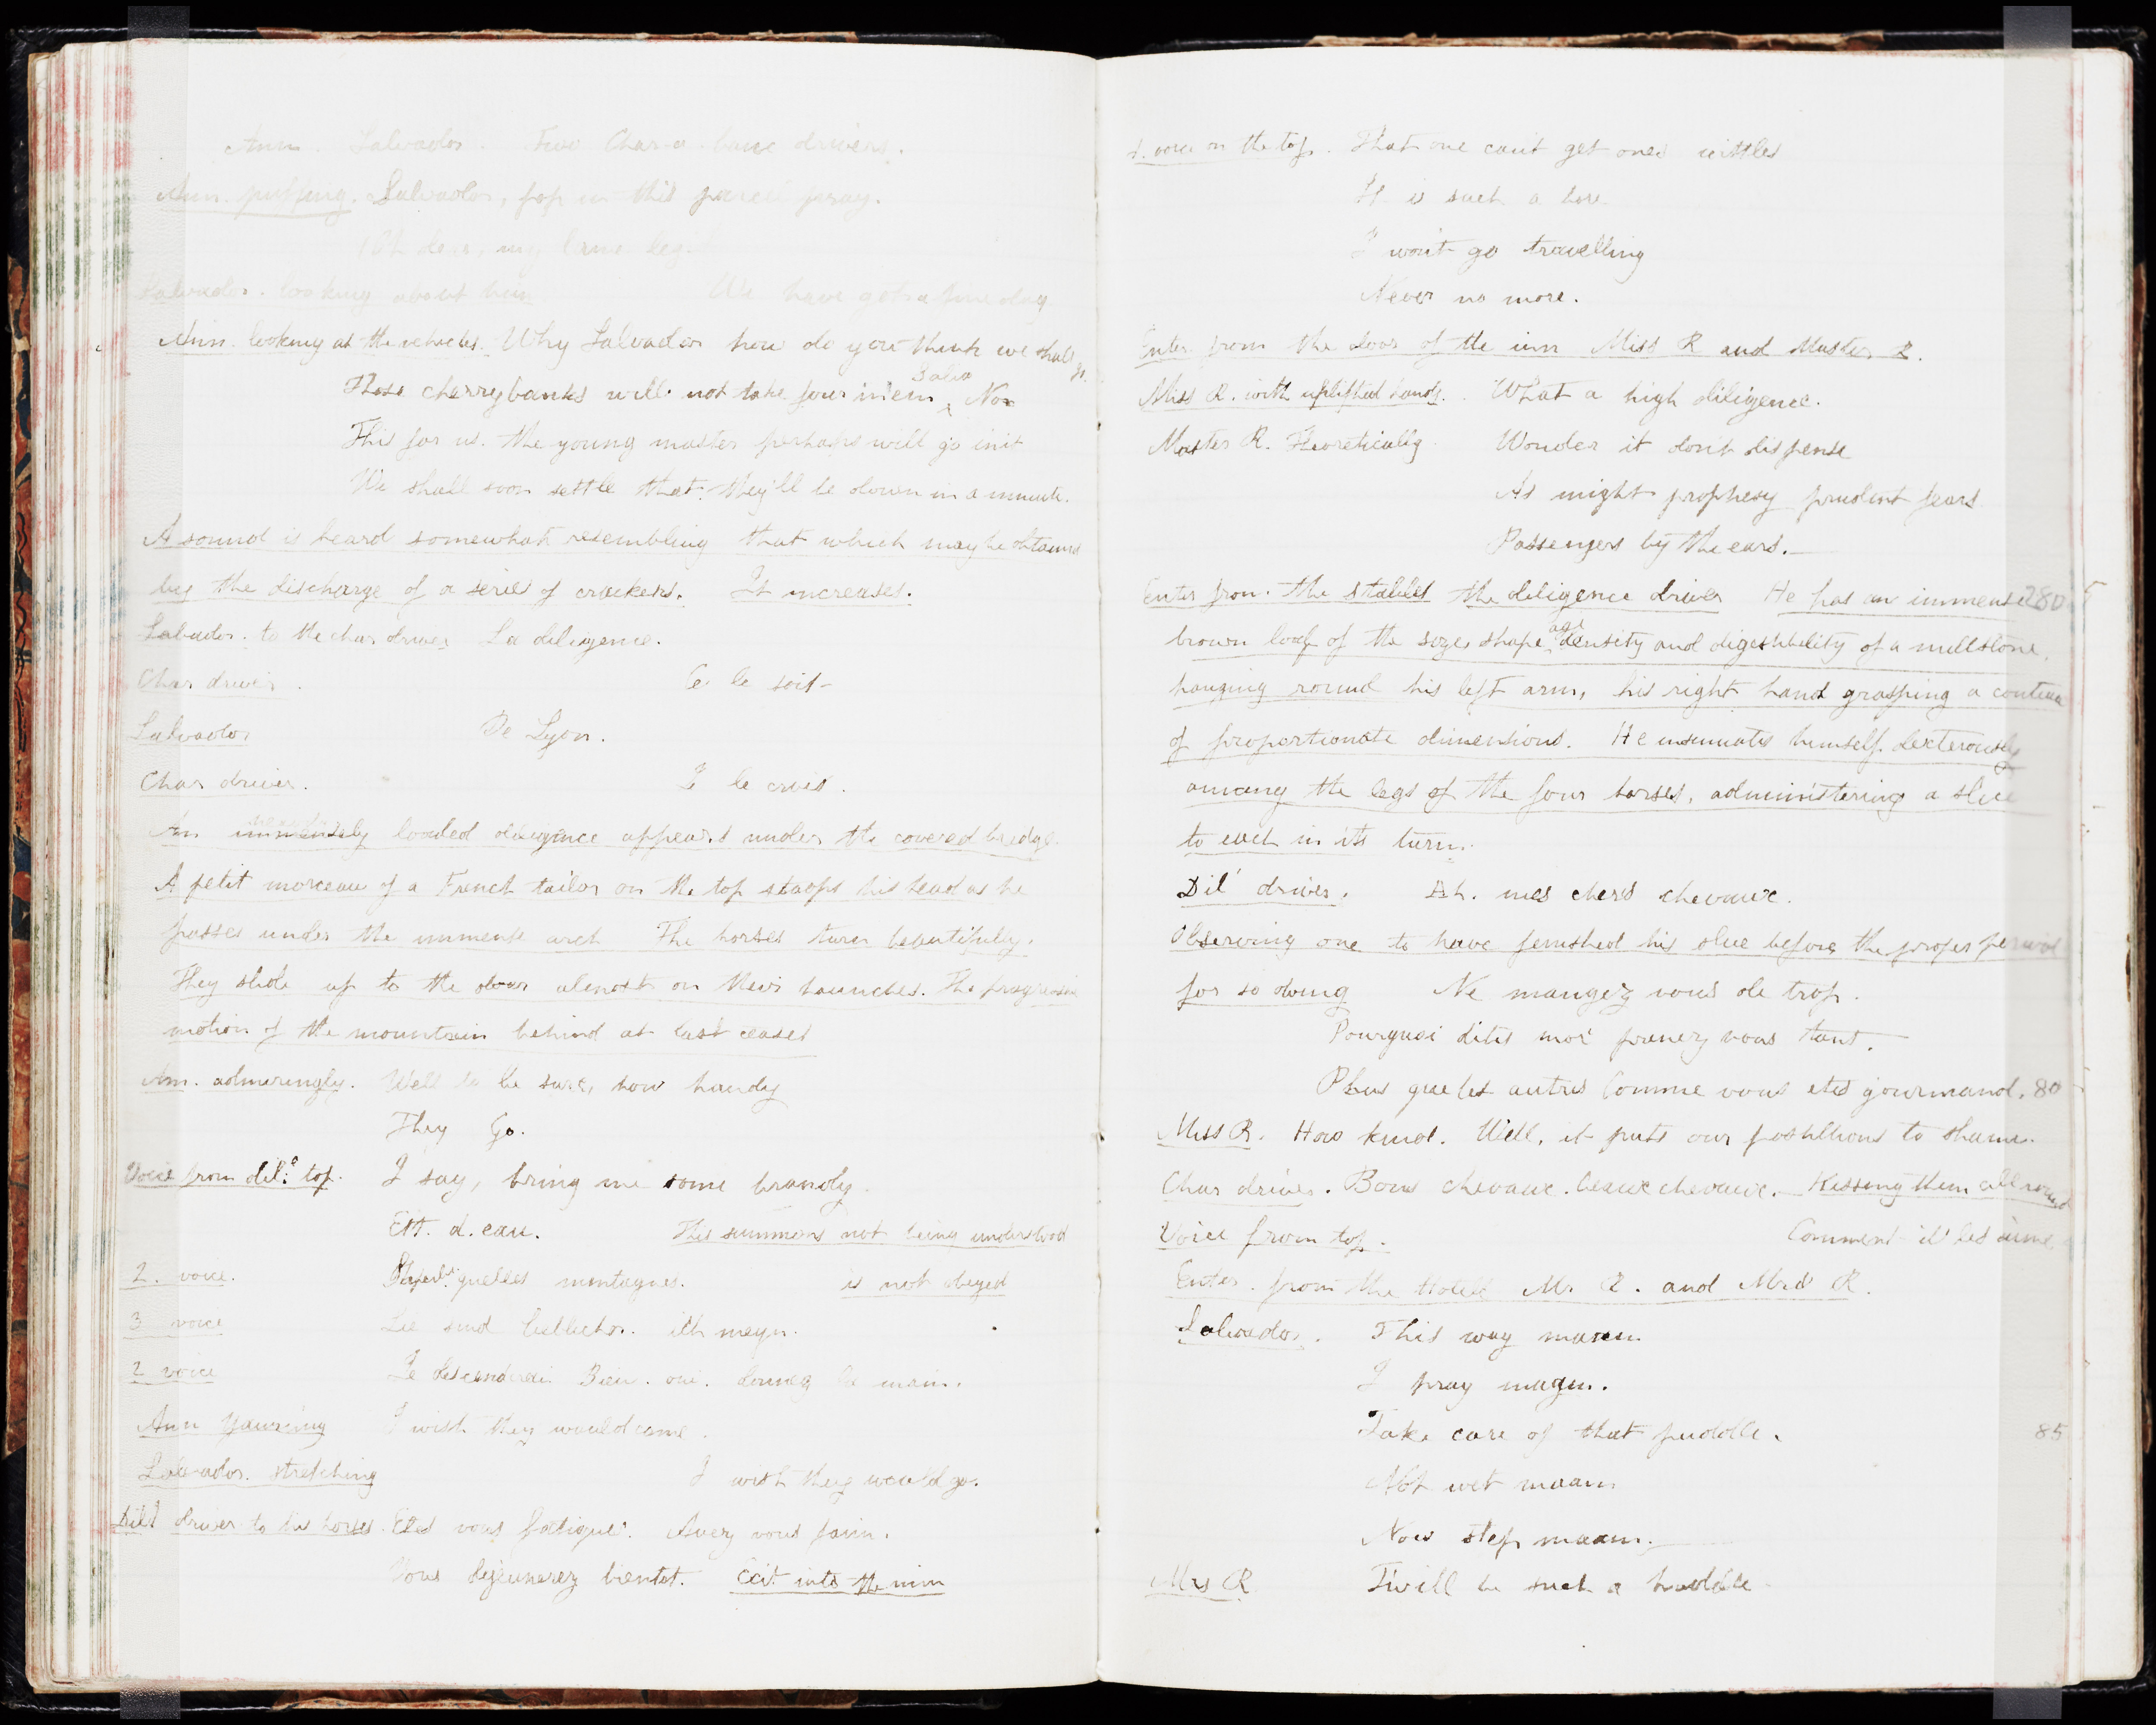 Ann. Salvador. Two Char-a-banc drivers.
Ann. puffing. Salvador, pop in this parcel pray.
Oh dear, my lame leg.
Salvador. looking about him We have got a fine day
Ann. looking at the vehicles. Why Salvador how do you think we shall go.
Those cherrybanks will not take four in em Salva Non
This for us. the young master perhaps will go init
We shall soon settle that. they'll be down in a minute.
A sound is heard somewhat resembling that which may be obtained
by the discharge of a series of crackers. It increases.
Salvador. to the char driver La diligence.
Char driver. Ce le soit
Salvador De Lyon.
Char driver. I le crois.
An immensely loaded diligence appears under the covered bridge.
A petit morceau of a French tailor on the top stoops his head as he
passes under the immense arch The horses turn beautifully.
They slide up to the door almost on their haunches. The progressive
motion of the mountain behind at last ceases
Ann. admiringly. Well to be sure, how handy
They Go.
Voice from dil.e top. I say, bring me some brandy.
Ett. d. eau. This summons not being understood
2. voice. quelles montagnes. is not obeyed
3 voice Sie sind ich
2 voice Je descenderai Bien. oui. donnez la main.
Ann Yawning I wish they would come.
Salvador. stretching I wish they would go.
Dil driver to his horses. Etes vous fatigué. Avez vous faim.
Vous dejeunerez bientot. Exit into the inn
voice on the top. That one cant get ones vittles
It is such a bore.
I wont go travelling
Never no more.
Enter from the door of the inn Miss R and Master R.
Miss R. with uplifted hands. What a high diligence.
Master R. Theoretically Wonder it dont dispense
As might prophesy prudent fears
Passengers by the ears.
Enter from the stables the diligence driver He has an immense 280
brown loaf of the size, shape, age density and digestibility of a millstone,
hanging round his left arm, his right hand grasping a couteau
of proportionate dimensions. He insinuates himself dexterously
among the legs of the four horses, administering a slice
to each in its turn.
Dil' driver. Ah. mes chers chevaux.
Observing one to have finished his slice before the proper period
for so doing Ne mangez vous de trop.
Pourquoi dites moi prenez vous tant.
Plus que les autres Comme vous etes gourmand. 80
Miss R. How kind. Well, it puts our postillions to shame.
Char driver. Bons chevaux. beaux chevaux. Kissing them all round
Voice from top. Comment il les aime.
Enter. from the Hotel Mr R. and Mrs R.
Salvador. This way maam
I pray maam.
Take care of that puddle. 85
Not wet maam
Now step maam.
Mrs R Twill be such a huddle